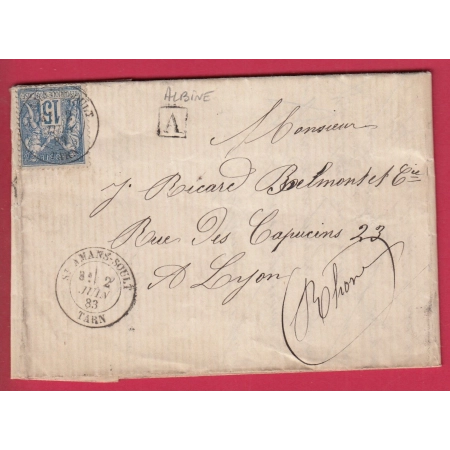 ALBINE
A
15
Monsieur
J. Ricard Belmont et Cie
Rue des Capucins 23
A Lyon
Rhone
ST AMANS-SOULT
2
JUIN
83
TARN